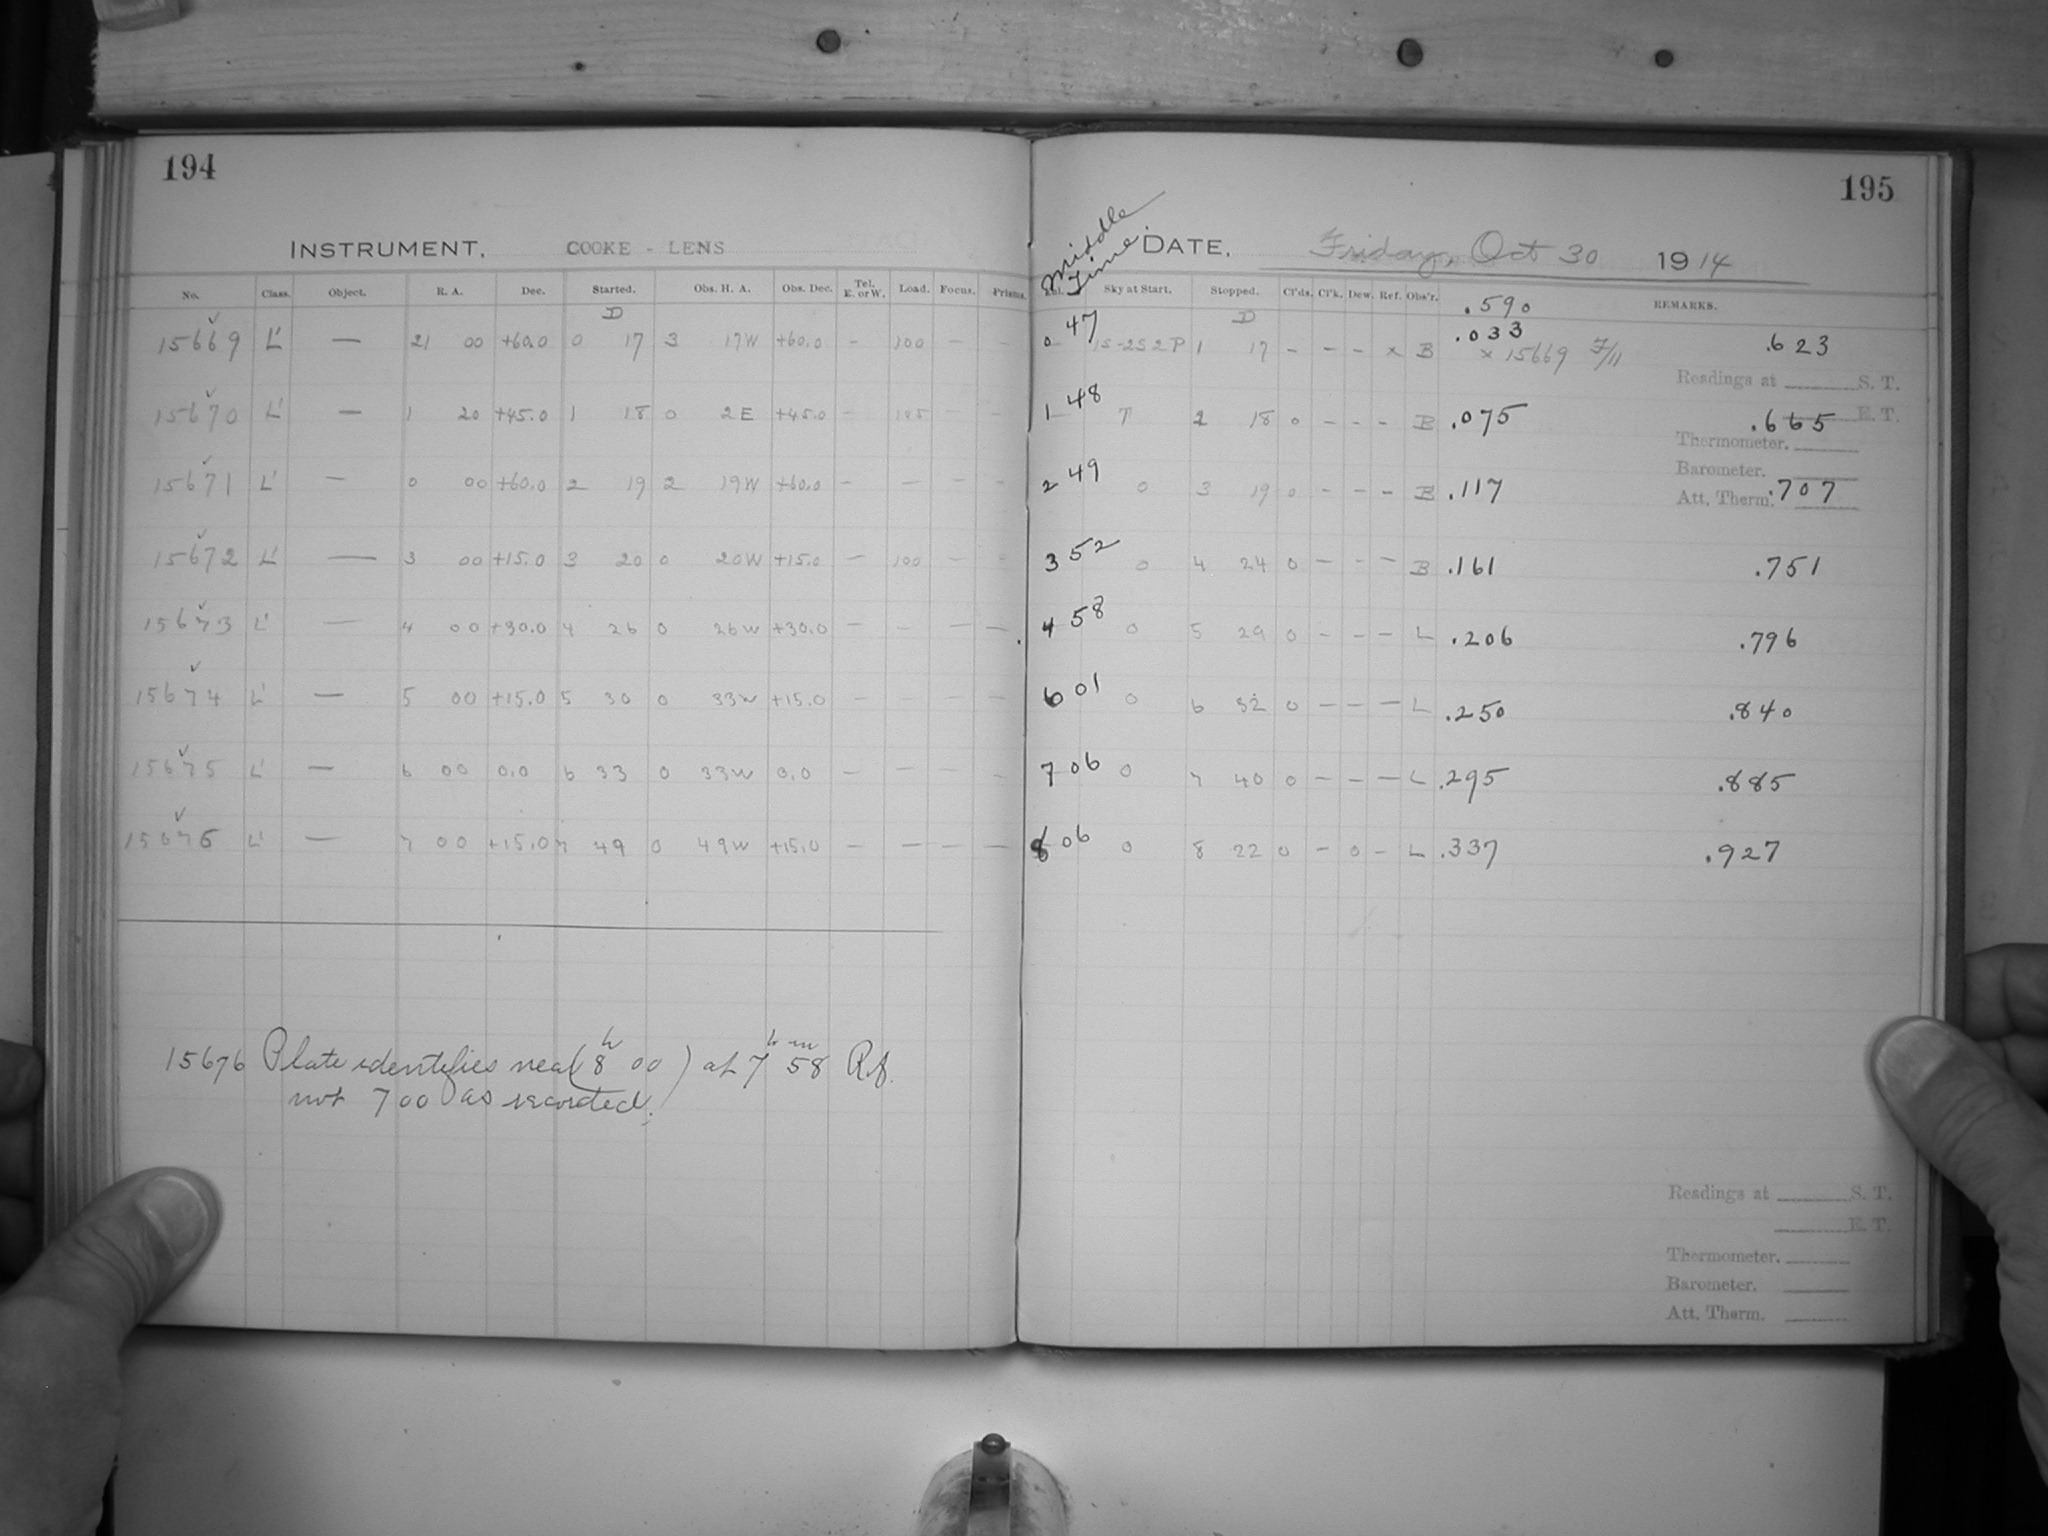 194
INSTRUMENT. COOKE - LENS
No. Class. Object. R. A. Dec. Started. Obs. H. A. Obs. Dec. Tel. E. or W. Load. Focus. Prisms.
D
15669 L' — 21 00 +60.0 0 17 3 17W +60.0 — 100 — —
15670 L' — 1 20 +45.0 1 18 0 2E +45.0 — — —
15671 L' — 0 00 +60.0 2 19 2 19W +60.0 — — — —
15672 L' — 3 00 +15.0 3 20 0 20W +15.0 — 100 — —
15673 L' — 4 00 +30.0 4 26 0 26W +30.0 — — — —
15674 L' — 5 00 +15.0 5 30 0 33W +15.0 — — —
15675 L' — 6 00 0.0 6 33 0 33W 0.0 — — — —
15676 L' — 7 00 +15.0 7 49 0 49W +15.0 — — — —
15676 Plate identifies near (8h 00) at 7h 58m R.A.
not 7 00 as recorded.
195
Middle Time.
DATE. Friday, Oct 30 1914
Sky at Start. Stopped. Cl'ds. Cl'k. Dew. Ref. Obs'r. REMARKS.
.590
D
0 47 1S-2S 2P 1 17 - - - x B .033 .623
x 15669 F/11
Readings at S. T.
1 48 2 18 0 - - - B .075 .665 E. T.
Thermometer.
Barometer.
2 49 0 3 19 0 - - - B .117 .707
Att. Therm.
3 52 0 4 24 0 - - - B .161 .751
4 58 0 5 29 0 - - - L .206 .796
6 01 0 6 32 0 - - - L .250 .840
7 06 0 7 40 0 - - - L .295 .885
8 06 0 8 22 0 - 0 - L .337 .927
Readings at S. T.
E. T.
Thermometer.
Barometer.
Att. Therm.